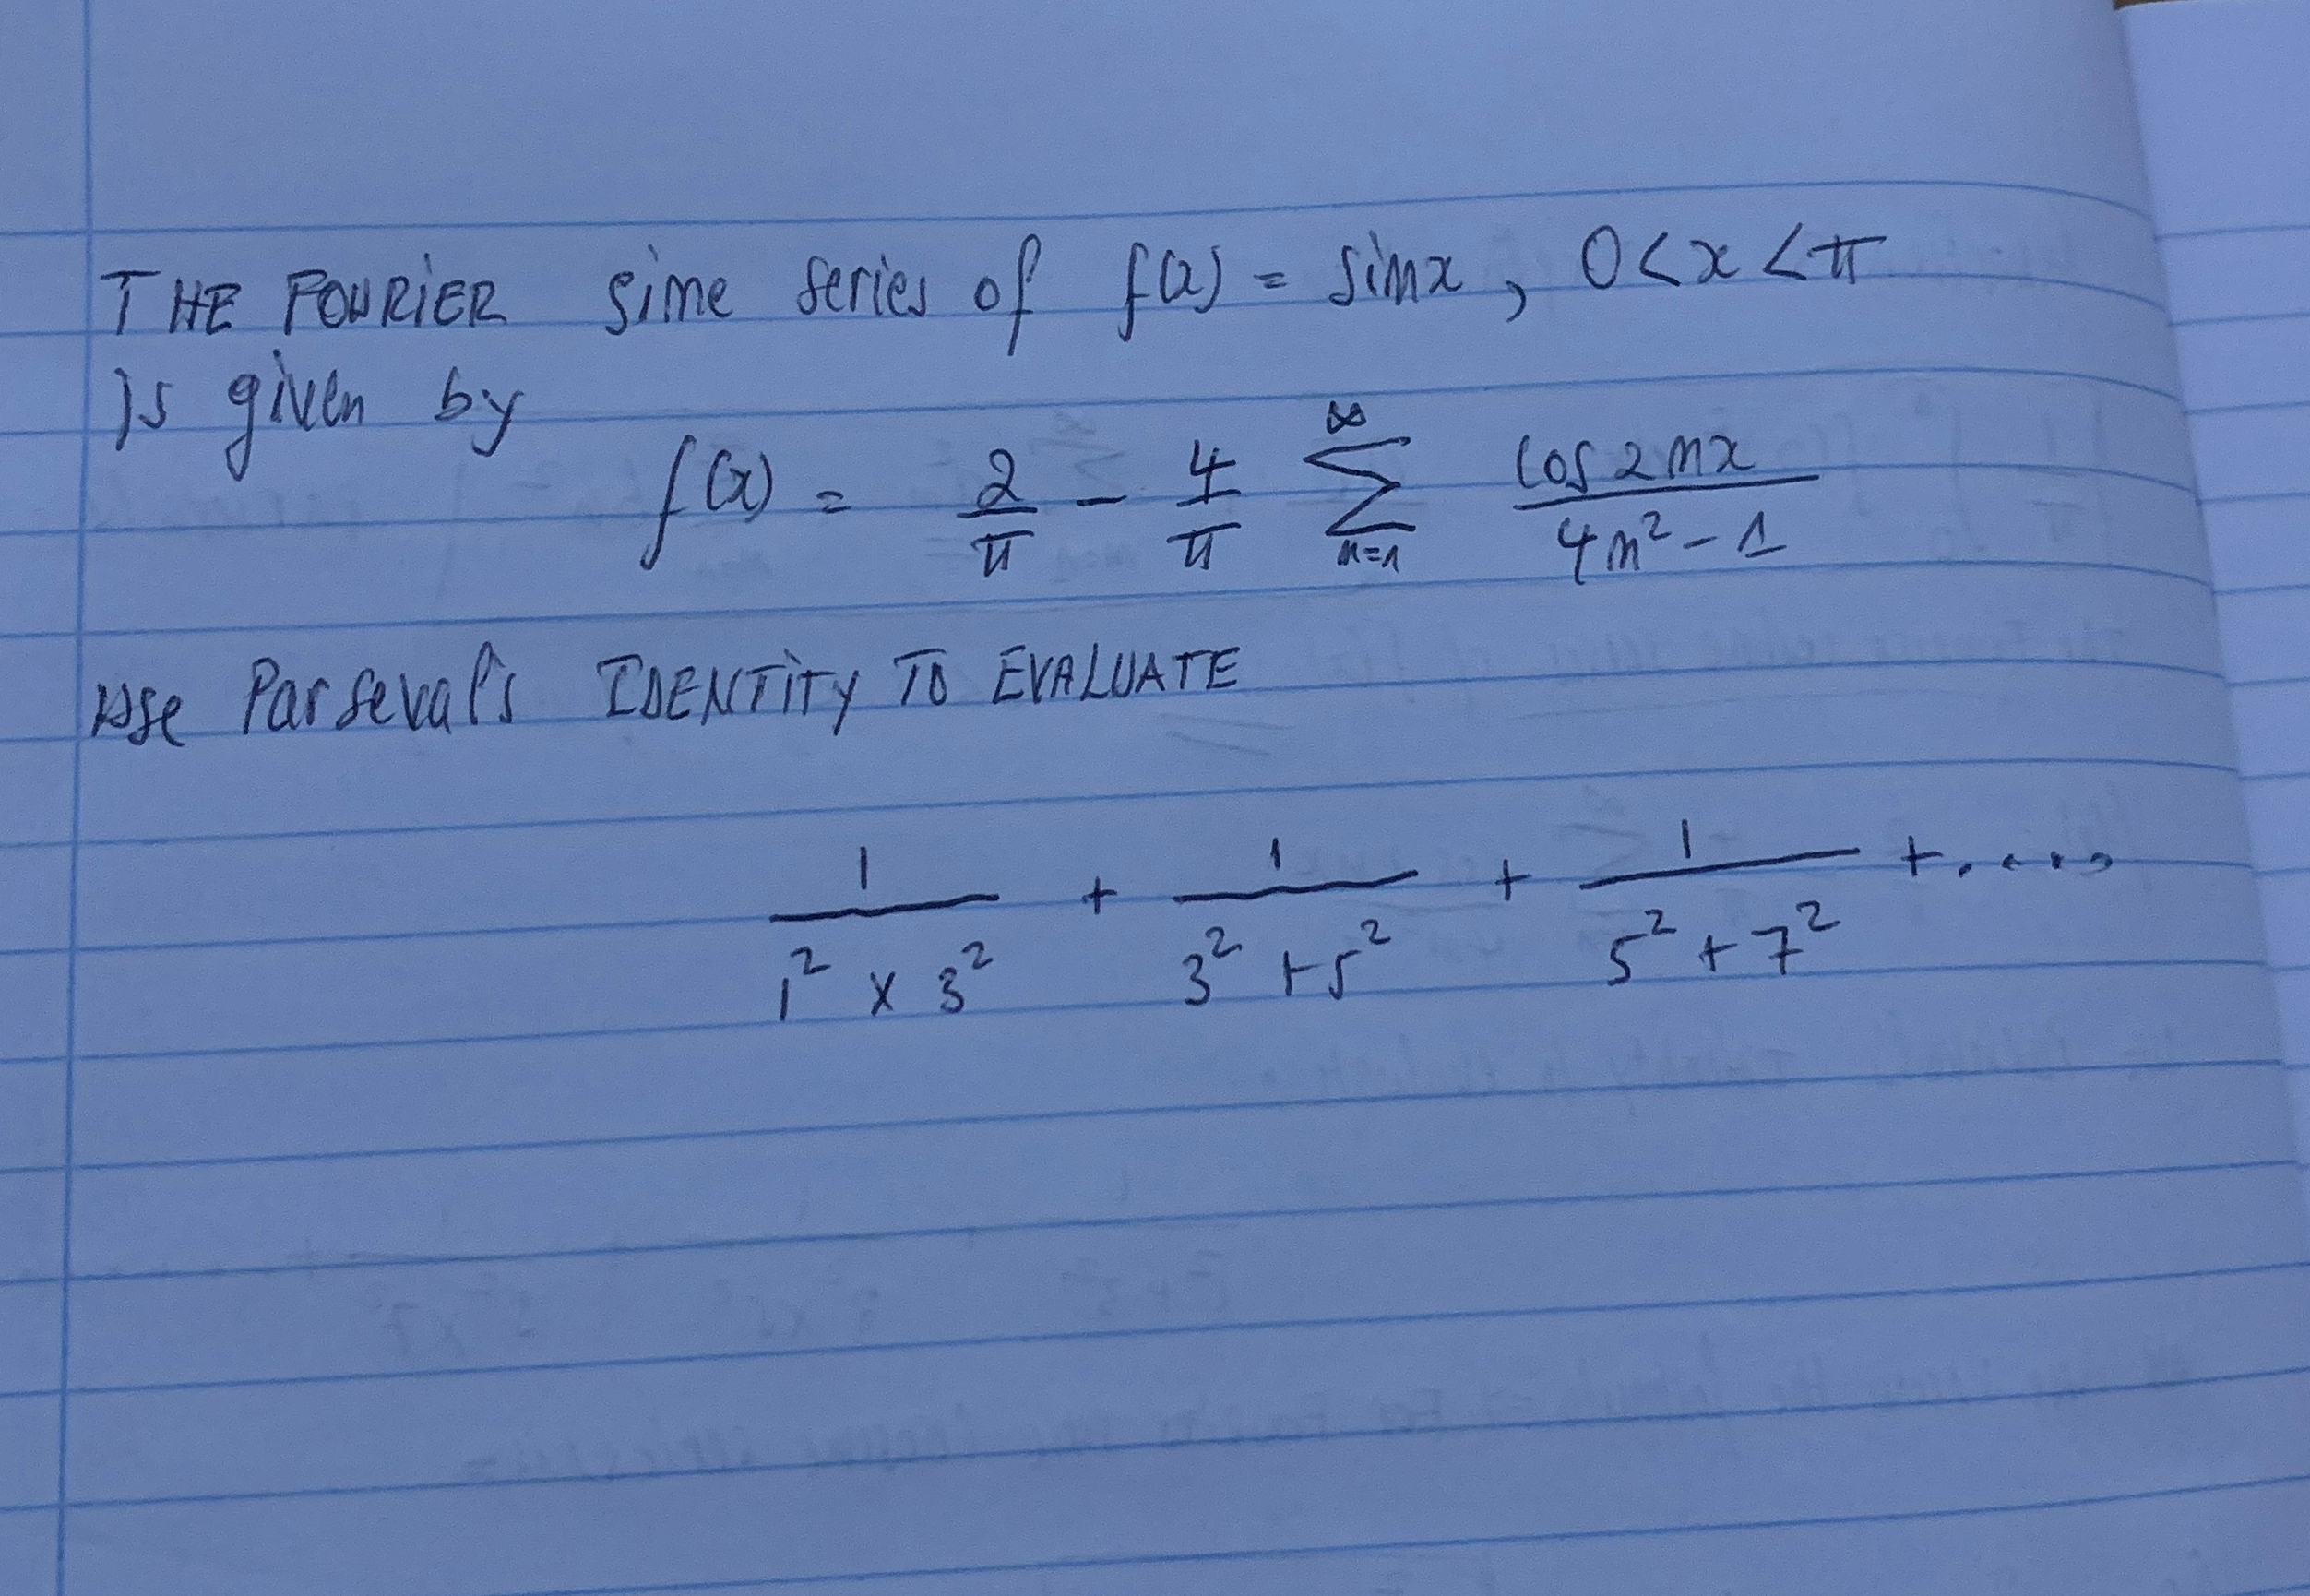 THE FOURIER sine series of f(x) = sinx, 0<x<π
is given by
f(x) = 2/π - 4/π ∑_{n=1}^{∞} cos2nx/(4n²-1)
use Parseval's IDENTITY TO EVALUATE
1/(1² x 3²) + 1/(3² + 5²) + 1/(5² + 7²) + ....